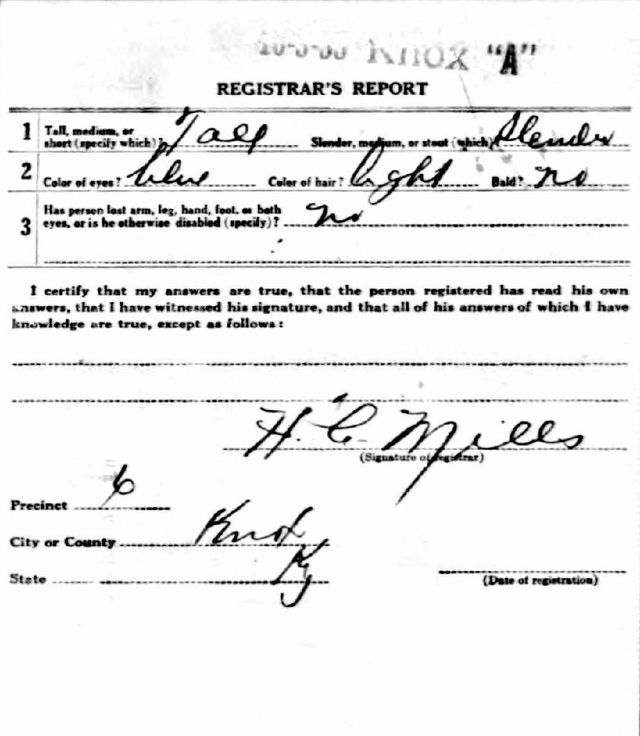 Knox "A"
REGISTRAR'S REPORT
1 Tall, medium, or short (specify which)? Tall Slender, medium, or stout (which)? Slender
2 Color of eyes? blue Color of hair? light Bald? no
3 Has person lost arm, leg, hand, foot, or both eyes, or is he otherwise disabled (specify)? no
I certify that my answers are true, that the person registered has read his own
answers, that I have witnessed his signature, and that all of his answers of which I have
knowledge are true, except as follows:
H. C. Mills
(Signature of registrar)
Precinct 6
City or County Knox
State Ky
(Date of registration)